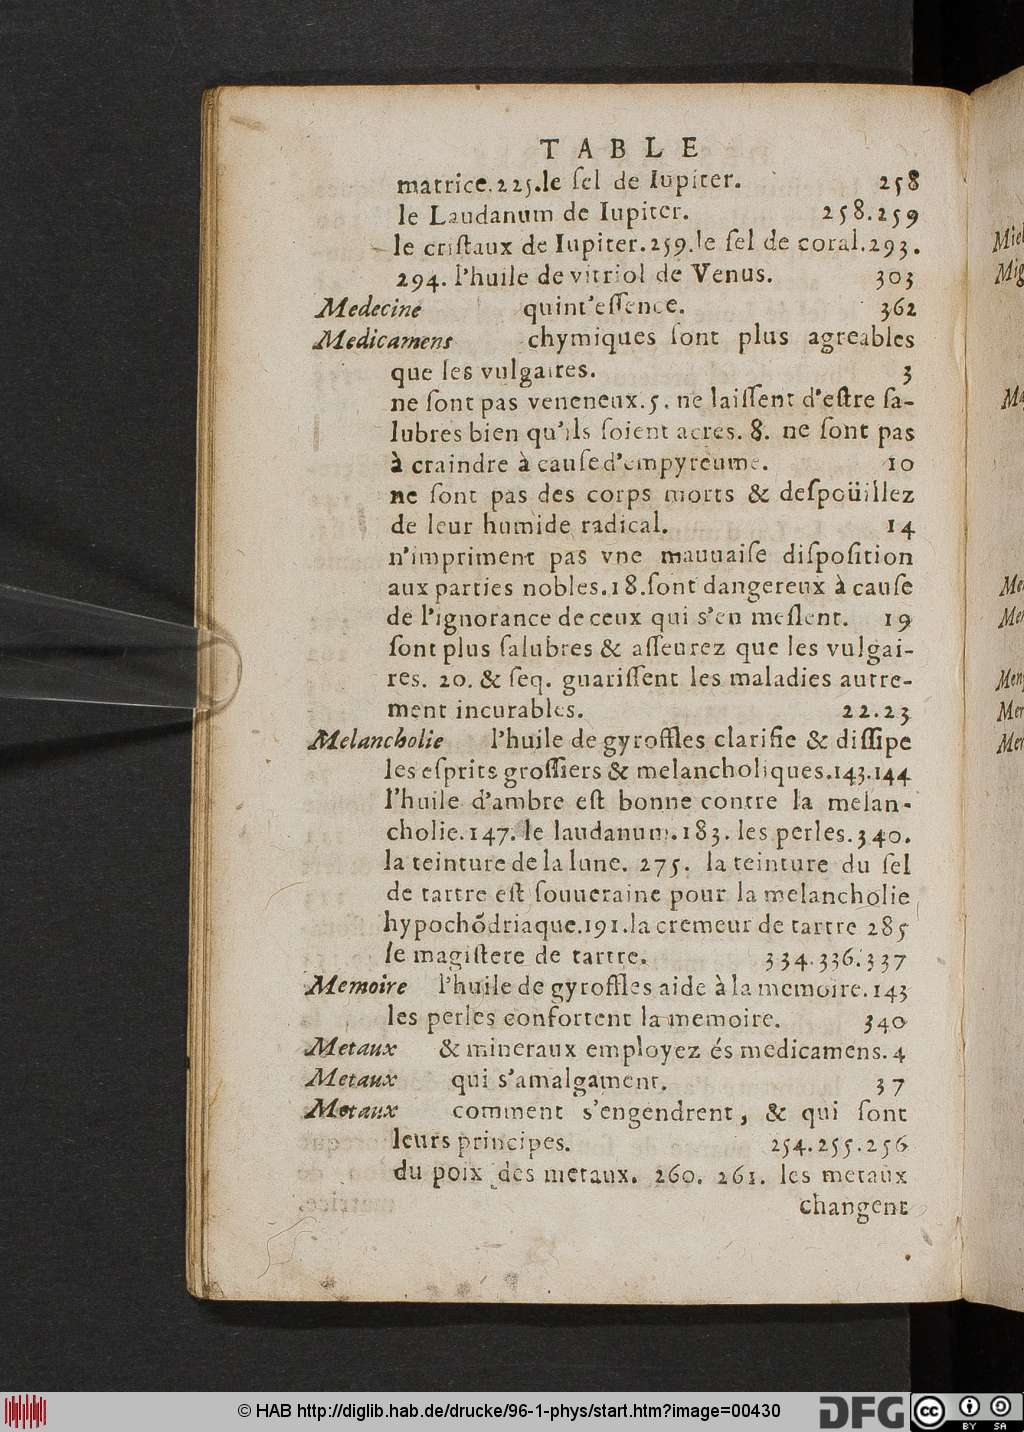 TABLE
matrice.225.le ſel de Iupiter. 258
le Laudanum de Iupiter. 258.259
le criſtaux de Iupiter.259.le ſel de coral.293.
294. l'huile de vitriol de Venus. 303
Medecine quint'eſſence. 362
Medicamens chymiques ſont plus agreables
que les vulgaires. 3
ne ſont pas veneneux.5. ne laiſſent d'eſtre ſa-
lubres bien qu'ils ſoient acres. 8. ne ſont pas
à craindre à cauſe d'empyreume. 10
ne ſont pas des corps morts & deſpoüillez
de leur humide radical. 14
n'impriment pas vne mauuaiſe diſpoſition
aux parties nobles.18.ſont dangereux à cauſe
de l'ignorance de ceux qui s'en meſlent. 19
ſont plus ſalubres & aſſeurez que les vulgai-
res. 20. & ſeq. guariſſent les maladies autre-
ment incurables. 22.23
Melancholie l'huile de gyroffles clarifie & diſſipe
les eſprits groſſiers & melancholiques.143.144
l'huile d'ambre eſt bonne contre la melan-
cholie.147. le laudanum.183. les perles.340.
la teinture de la lune. 275. la teinture du ſel
de tartre eſt ſouueraine pour la melancholie
hypochõdriaque.191.la cremeur de tartre 285
le magiſtere de tartre. 334.336.337
Memoire l'huile de gyroffles aide à la memoire.143
les perles confortent la memoire. 340
Metaux & mineraux employez és medicamens.4
Metaux qui s'amalgament. 37
Metaux comment s'engendrent, & qui ſont
leurs principes. 254.255.256
du poix des metaux. 260. 261. les metaux
changent
Miel
Mig
© HAB http://diglib.hab.de/drucke/96-1-phys/start.htm?image=00430
DFG
cc BY SA